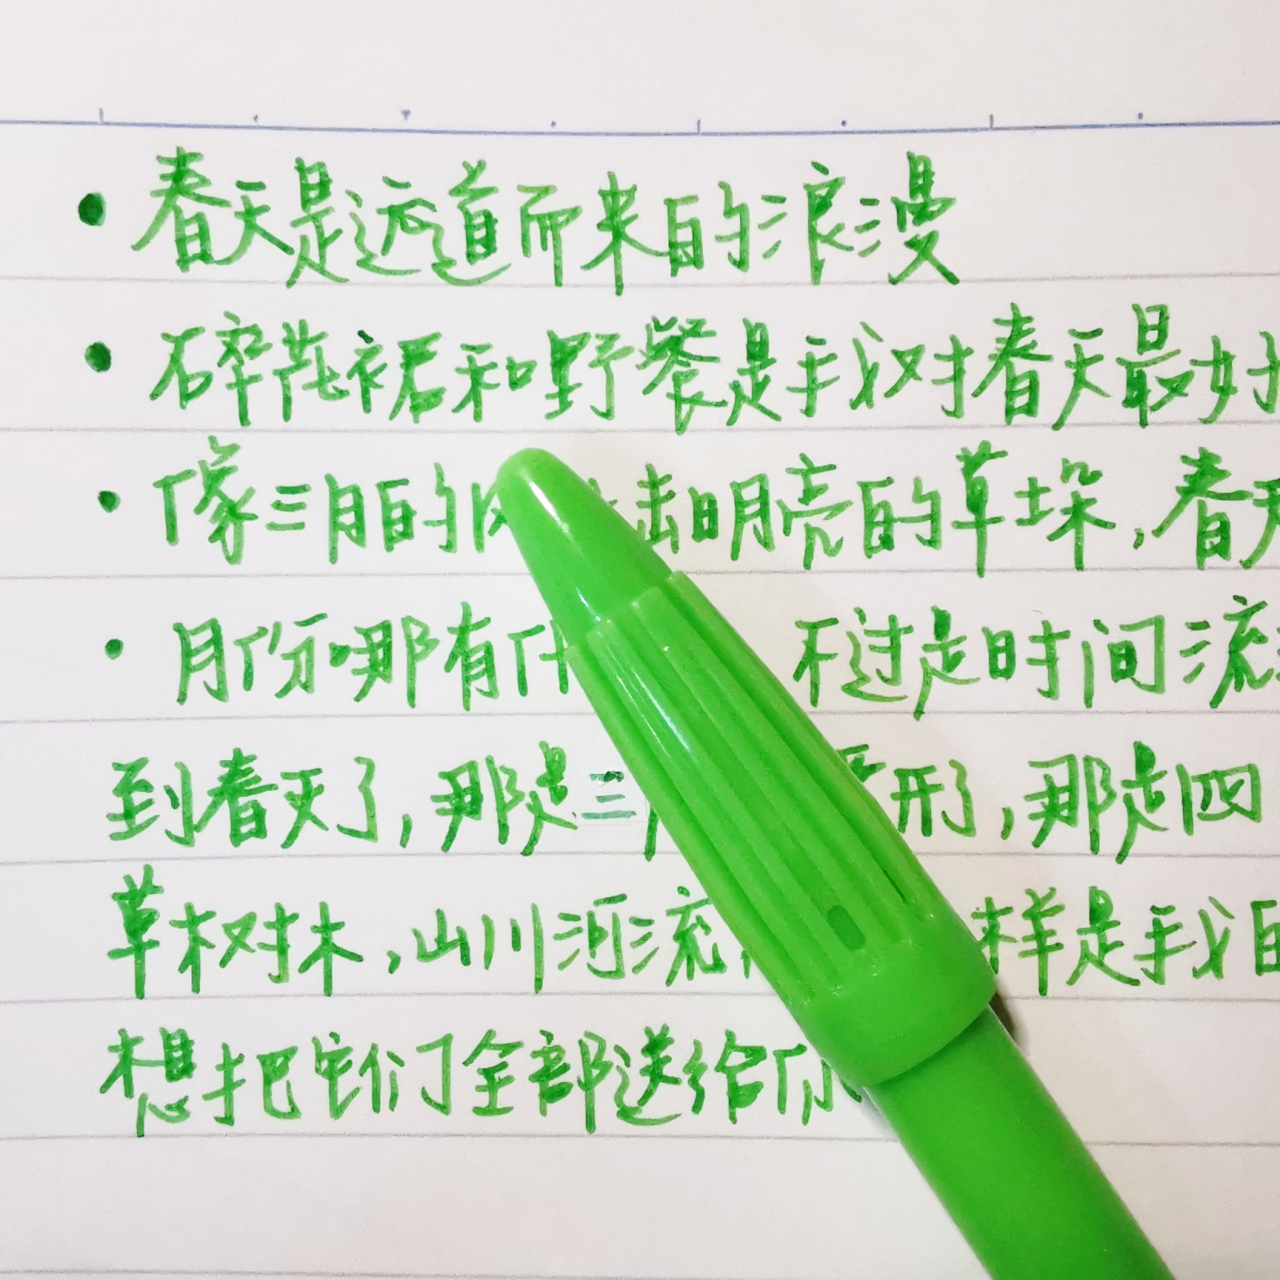 • 春天是远道而来的浪漫
• 碎花裙和野餐是我对春天最好
• 像三月的风 击明亮的草垛,春天
• 月份哪有什 不过是时间流
到春天了,那是三 形了,那是四
草树木,山川河流 样是我的
想把它们全部送给你